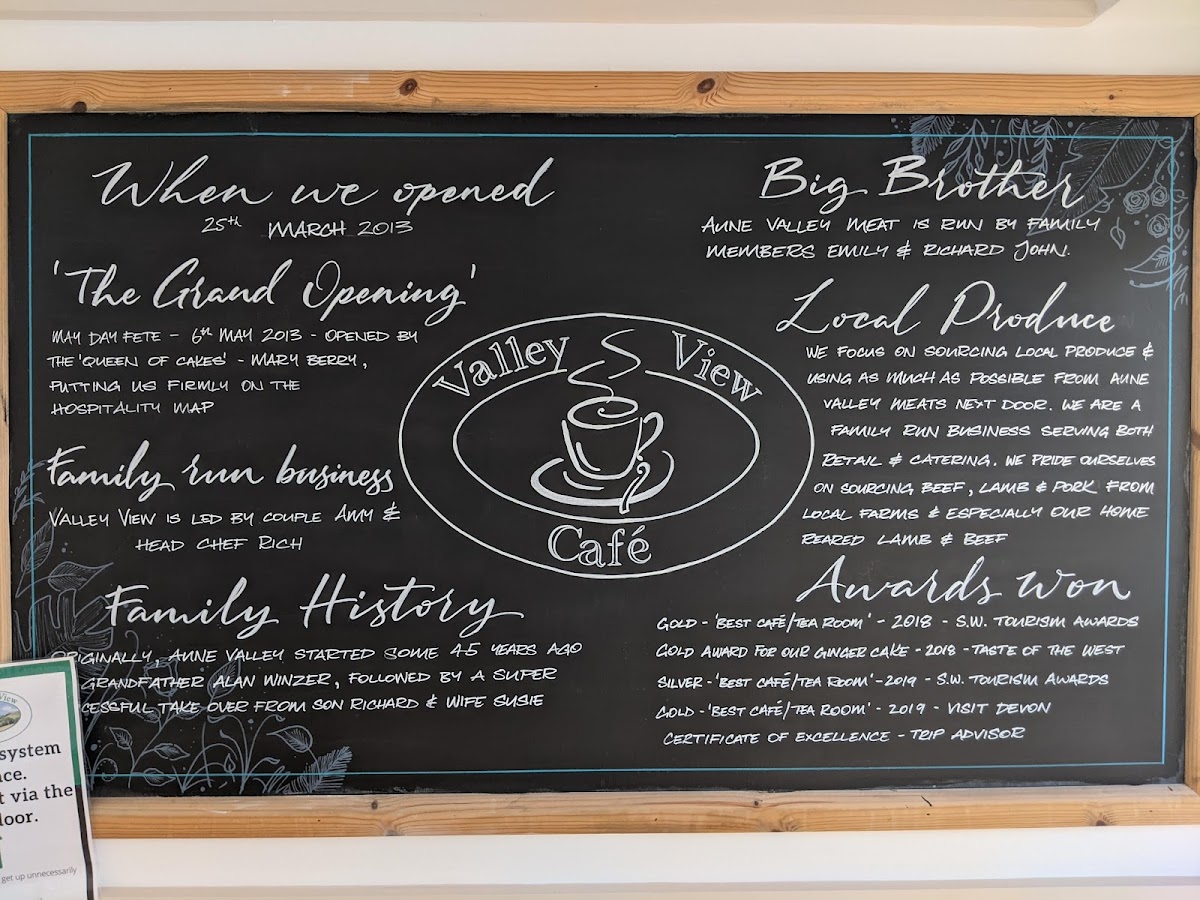 When we opened
25th MARCH 2013
'The Grand Opening'
MAY DAY FETE - 6th MAY 2013 - OPENED BY
THE 'QUEEN OF CAKES' - MARY BERRY,
PUTTING US FIRMLY ON THE
HOSPITALITY MAP
Family run business
VALLEY VIEW IS LED BY COUPLE AMY &
HEAD CHEF RICH
Family History
ORIGINALLY, AUNE VALLEY STARTED SOME 45 YEARS AGO
GRANDFATHER ALAN WINZER, FOLLOWED BY A SUPER
CESSFUL TAKE OVER FROM SON RICHARD & WIFE SUSIE
Valley View
Café
Big Brother
AUNE VALLEY MEAT IS RUN BY FAMILY
MEMBERS EMILY & RICHARD JOHN.
Local Produce
WE FOCUS ON SOURCING LOCAL PRODUCE &
USING AS MUCH AS POSSIBLE FROM AUNE
VALLEY MEATS NEXT DOOR. WE ARE A
FAMILY RUN BUSINESS SERVING BOTH
RETAIL & CATERING. WE PRIDE OURSELVES
ON SOURCING BEEF, LAMB & PORK FROM
LOCAL FARMS & ESPECIALLY OUR HOME
REARED LAMB & BEEF
Awards Won
GOLD - 'BEST CAFÉ/TEA ROOM' - 2018 - S.W. TOURISM AWARDS
GOLD AWARD FOR OUR GINGER CAKE - 2018 - TASTE OF THE WEST
SILVER - 'BEST CAFÉ/TEA ROOM' - 2019 - S.W. TOURISM AWARDS
GOLD - 'BEST CAFÉ/TEA ROOM' - 2019 - VISIT DEVON
CERTIFICATE OF EXCELLENCE - TRIP ADVISOR
View
system
ce.
t via the
loor.
get up unnecessarily